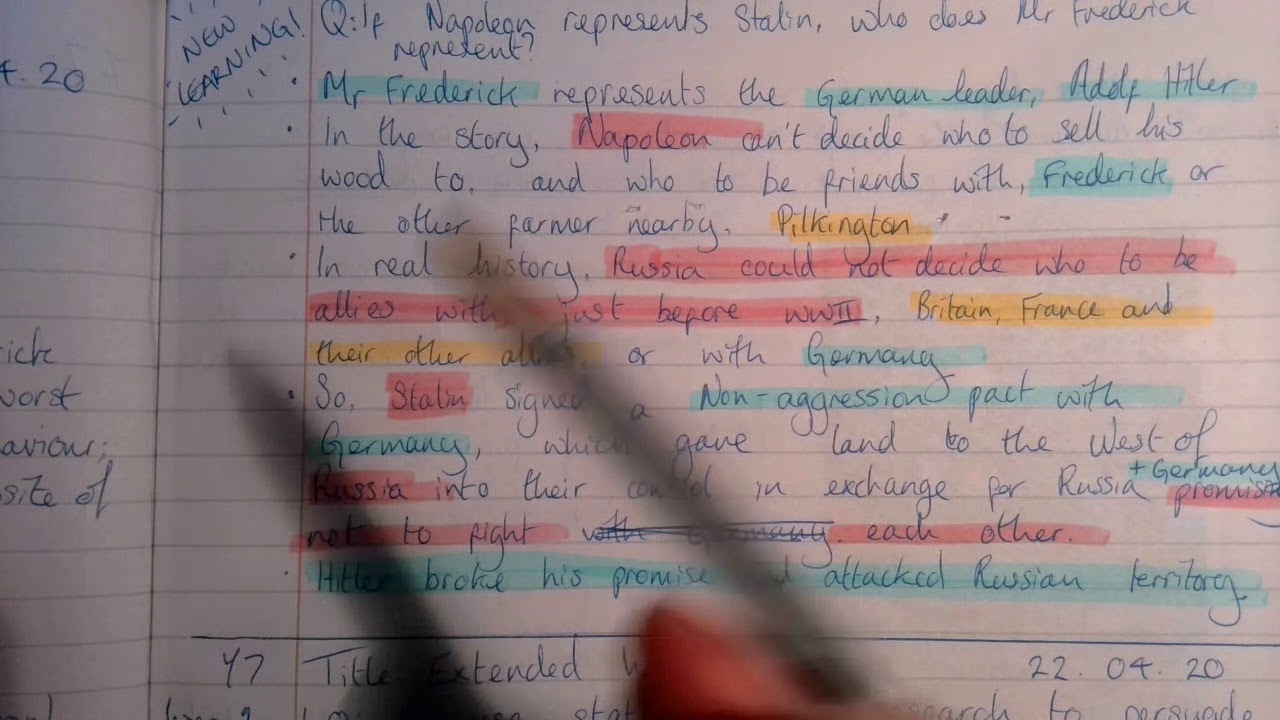 4.20
NEW
LEARNING!
Q: If Napoleon represents Stalin, who does Mr Frederick
represent?
• Mr Frederick represents the German leader, Adolf Hitler
• In the story, Napoleon can't decide who to sell his
wood to, and who to be friends with, Frederick or
the other farmer nearby, Pilkington
• In real history, Russia could not decide who to be
allies with just before WWII, Britain, France and
their other or with Germany
• So, Stalin signed a Non-aggression pact with
Germany, which gave land to the West of
Russia into their in exchange for Russia + Germany promise
not to fight with Germany. each other.
• Hitler broke his promise attacked Russian territory.
rick
worst
aviour;
site of
Y7 Title Extended 22.04.20
to persuade